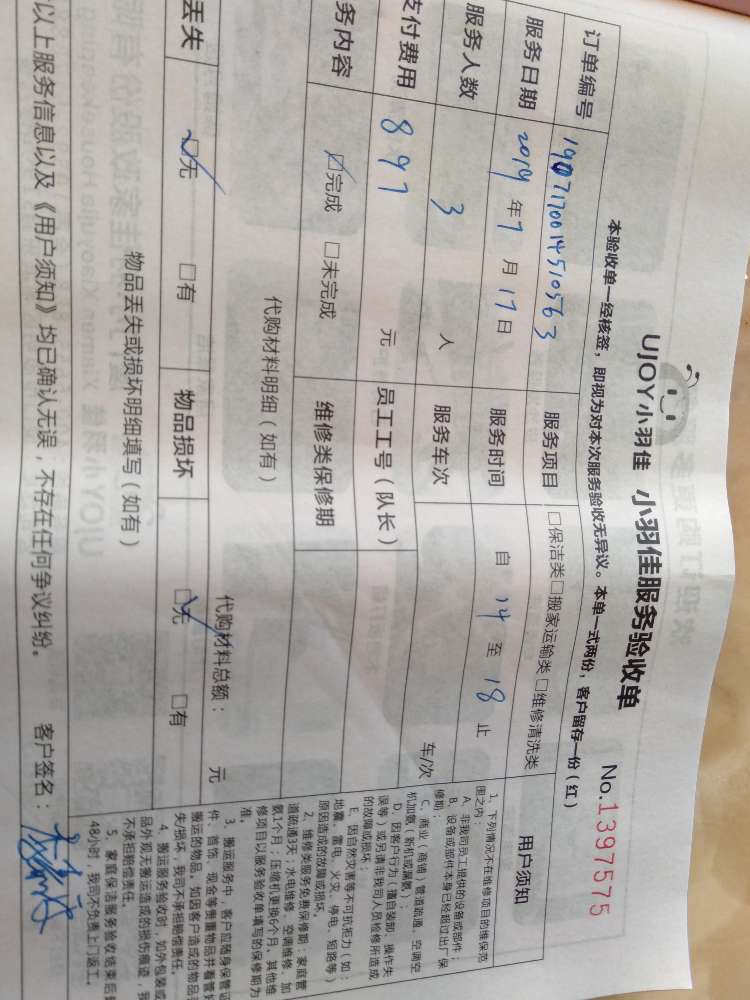 UJOY小羽佳 小羽佳服务验收单 No.1397575
本验收单一经核签，即视为对本次服务验收无异议。本单一式两份，客户留存一份（红）
订单编号 190717001451056 3 服务项目 □保洁类□搬家运输类□维修清洗类
服务日期 2019年7月17日 服务时间 自 14 至 18 止
服务人数 3 人 服务车次 车/次
支付费用 897 元 员工工号（队长）
务内容 ☑完成 □未完成 维修类保修期
代购材料明细（如有） 代购材料总额： 元
丢失 ☑无 □有 物品损坏 ☑无 □有
物品丢失或损坏明细填写（如有）
以上服务信息以及《用户须知》均已确认无误，不存在任何争议纠纷。 客户签名：
用户须知
1、下列情况不在维修项目的维保范
围之内：
A、非我司员工提供的设备或部件；
B、设备或部件本身已经超过出厂保
修期；
C、商业（商铺）管道疏通，空调空
机加氨（新机或漏氨）；
D、因客户行为（擅自装卸、操作失
误等）或另请非我司人员检修所造成
的故障或损坏；
E、因自然灾害等不可抗拒力（如：
地震、雷电、火灾、停电、短路等）
原因造成的故障或损坏。
2、维修类服务免费保修期：家庭管
道疏通3天；水电维修、空调维修、加
氨1个月；压缩机更换6个月，其他维
修项目以服务验收单填写的保修期为
准。
3、搬运服务中，客户应随身保管证
件、首饰、现金等贵重物品并看管好
搬运的物品，如因客户造成的物品丢
失/损坏，我司不承担赔偿责任。
4、搬运服务验收时，如外包装或
品外观无搬运造成的损伤痕迹，我
不承担赔偿责任。
5、家庭保洁服务验收结束后超
48小时，我司不负责上门返工。